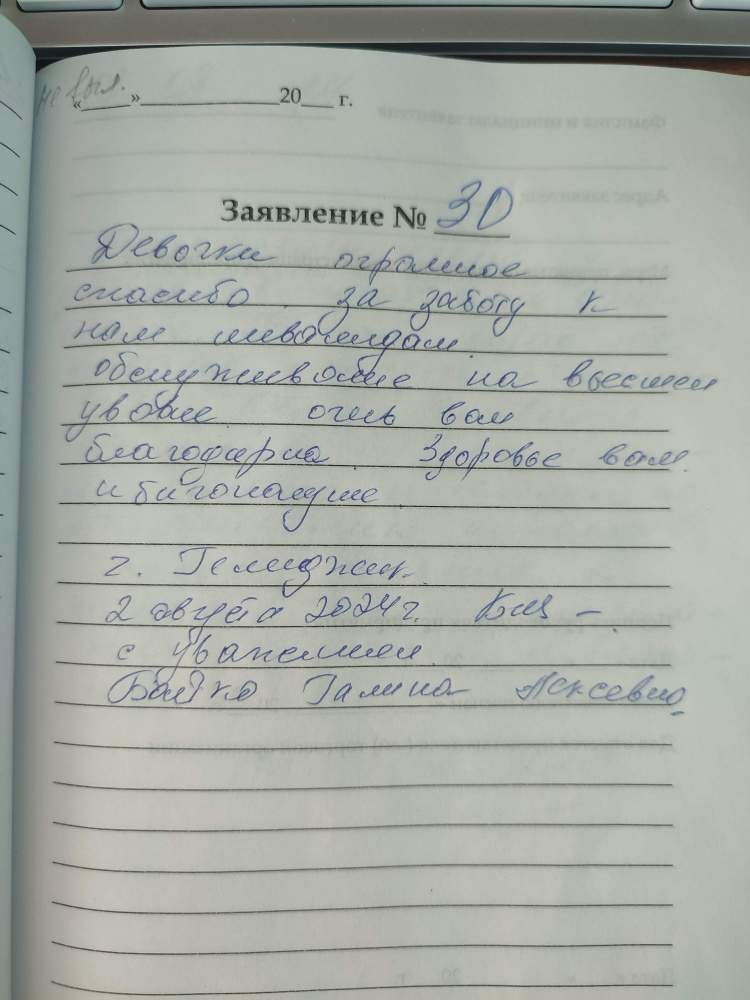 «____»____________20___ г.
Заявление № 30
Девочки огромное
спасибо за заботу к
нам инвалидам.
обслуживобие на высшем
уровне очень вам
благодарна. Здоровье вам.
и благополучие
г. Геленджик.
2 августа 2024 г.
с уважением
Галина